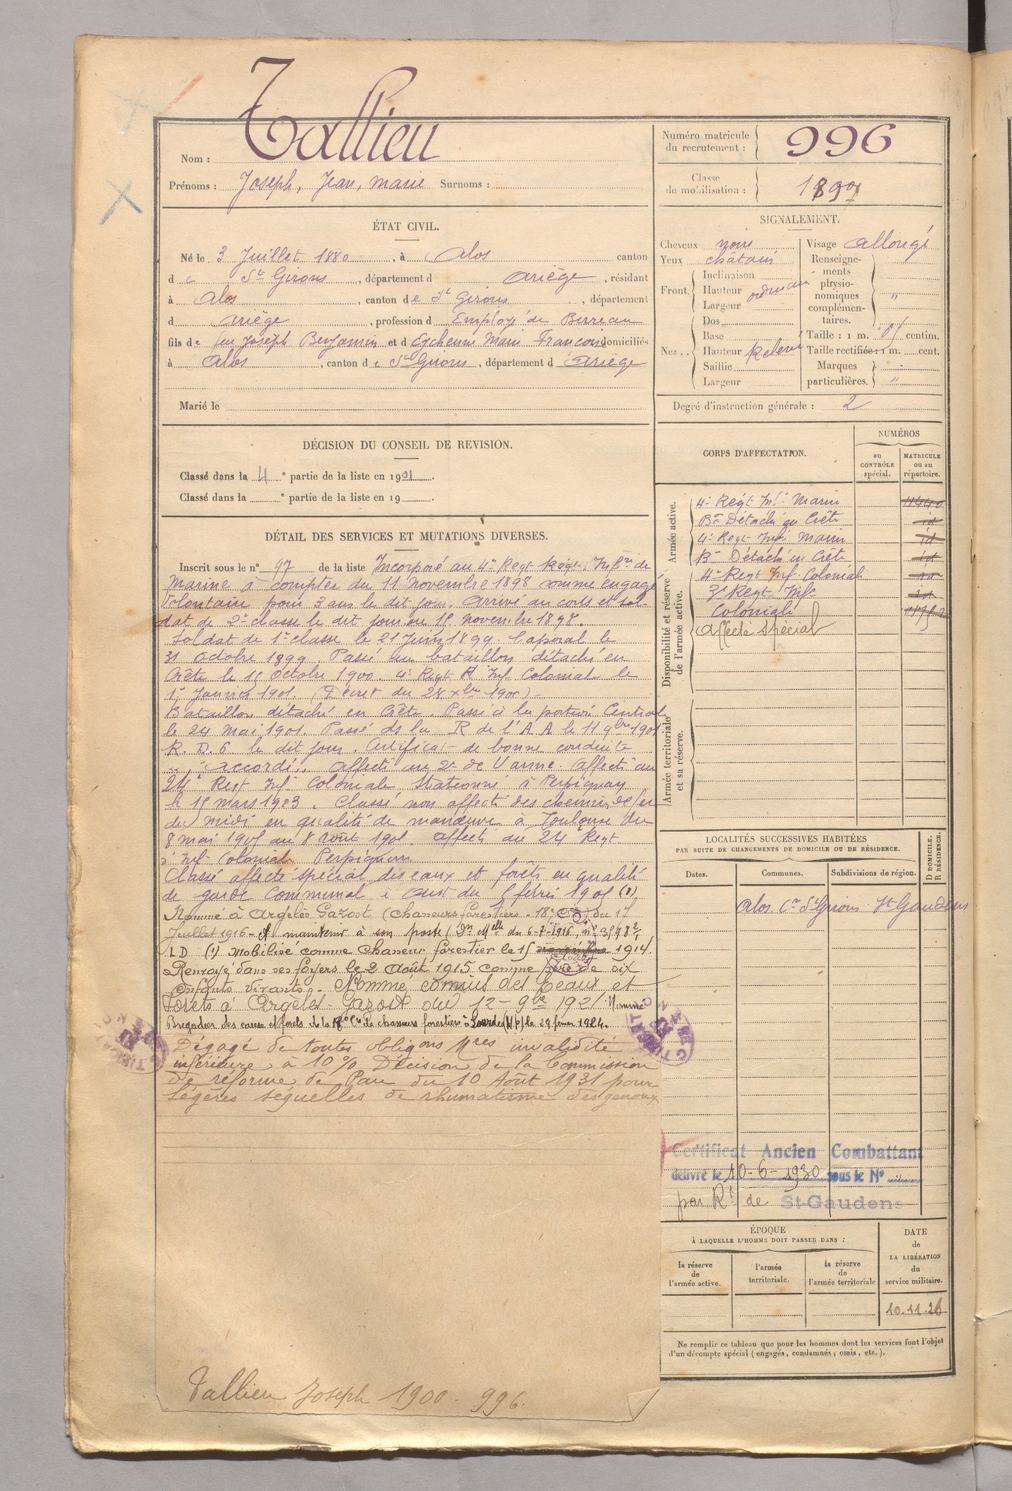 Tallieu
Nom :
Prénoms : Joseph, Jean, Marie Surnoms :
Numéro matricule
du recrutement : 996
Classe
de mobilisation :
ÉTAT CIVIL.
Né le 3 Juillet 1880, à Alos canton
de St Girons, département d Ariège, résidant
à Alos, canton de St Girons, département
d Ariège, profession d Employé de Bureau
fils de feu Joseph Benjamin et d domiciliés
à Alos, canton de St Girons, département d Ariège
Marié le
SIGNALEMENT.
Cheveux noirs
Yeux châtain
Front. Inclinaison
Hauteur ordinaire
Largeur
Nez.. Dos
Base
Hauteur Relevé
Saillie
Largeur
Visage allongé
Renseigne-
ments
physio-
nomiques
complémen-
taires. "
Taille : 1 m. centim.
Taille rectifiée : 1 m. cent.
Marques
particulières. "
Degré d'instruction générale : 2
DÉCISION DU CONSEIL DE REVISION.
Classé dans la 4e partie de la liste en 1901.
Classé dans la e partie de la liste en 19
CORPS D'AFFECTATION.
NUMÉROS
au
CONTRÔLE
spécial.
MATRICULE
ou au
répertoire.
Armée active.
4e Régt Infie Marine
Bon Détaché en Crête
4e Régt Infie Marine id
Bon Détaché en Crête id
4e Régt Inf. Coloniale
Régt Infie
Coloniale
Affecté Spécial
Disponibilité et réserve
de l'armée active.
Armée territoriale
et sa réserve.
DÉTAIL DES SERVICES ET MUTATIONS DIVERSES.
Inscrit sous le n° 97 de la liste Incorporé au 4e Régt Infie de
Marine à compter du 11 Novembre 1898 comme engagé
Volontaire pour 3 ans le dit jour. Arrivé au corps et sol-
dat de 2e classe le dit jour ou 15 novembre 1898.
Soldat de 1e classe le 21 Juin 1899. Caporal le
31 Octobre 1899. Passé au bataillon détaché en
Crête le 15 Octobre 1900. 4e Régt d'Inf. Coloniale le
1er Janvier 1901. (Décret du 28 Xbre 1900).
Bataillon détaché en Crête. Passé à la portion Centrale
le 24 mai 1901. Passé ds la R de l'A A le 11 9bre 1901
R. D. 6 le dit jour. Certificat de bonne conduite
"accordé". Affecté au 2e de l'arme. Affecté au
24e Régt Infie Coloniale Stationné à Perpignan
le 15 mars 1903. Classé non affecté des chemins de fer
du Midi en qualité de manœuvre à Toulouse du
8 mai 1905 au 8 août 1905. Affecté au 24 Régt
d'Infie Coloniale Perpignan
Classé affecté spécial des eaux et forêts en qualité
de garde Communal à (1)
Nommé à Argelès Gazost (Chasseurs forestiers - 18e Cie) du 17
Juillet 1916 - A maintenir à son poste (Don Mlle du 6-7-1916,
LD (1) Mobilisé comme Chasseur forestier le 15 1914.
Renvoyé dans ses foyers le 2 Août 1915 comme père de six
enfants vivants. Nommé commis des eaux et
forêts à Argelès-Gazost du 12-9bre 1921. Nommé
Brigadier des eaux et forêts à la 18e Cie de chasseurs forestiers à Lourdes (H.P.) le 29 février 1924.
Dégagé de toutes obligons Mres invalidité
inférieure à 10 % Décision de la Commission
de réforme de Pau du 10 Août 1931 pour
légères séquelles de rhumatisme des genoux
LOCALITÉS SUCCESSIVES HABITÉES
PAR SUITE DE CHANGEMENTS DE DOMICILE OU DE RÉSIDENCE.
Dates.
Communes.
Subdivisions de région.
D DOMICILE.
R RÉSIDENCE.
Alos Con St Girons St Gaudens
Certificat Ancien Combattant
délivré le 10-6-1930 sous le No
par Rt de St-Gaudens
ÉPOQUE
À LAQUELLE L'HOMME DOIT PASSER DANS :
la réserve
de
l'armée active.
l'armée
territoriale.
la réserve
de
l'armée territoriale
DATE
de
LA LIBÉRATION
du
service militaire.
10.11.26
Ne remplir ce tableau que pour les hommes dont les services font l'objet
d'un décompte spécial (engagés, condamnés, omis, etc.).
Tallieu Joseph 1900. 996.